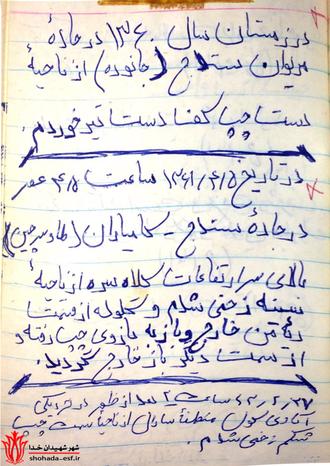 در زمستان سال ۱۳۶۰ در جادهٔ
مریوان سنندج (جانوره) از ناحیهٔ
دست چپ کف دست تیر خوردم.
در تاریخ ۱۳۶۱/۴/۵ ساعت ۴/۵ عصر
در جادهٔ سنندج - کامیاران
بالای سر ارتفاعات کلاه سره از ناحیهٔ
سینه زخمی شدم و گلوله از قسمت
من خارج و باز به بازوی چپ رفته و
از سمت دیگر باز خارج گردید.
ساعت ۲ بعد از ظهر در نزدیکی
آبادی منطقهٔ از ناحیهٔ سمت چپ
شکم زخمی شدم.
شهر شهیدان خدا
shohada-esf.ir